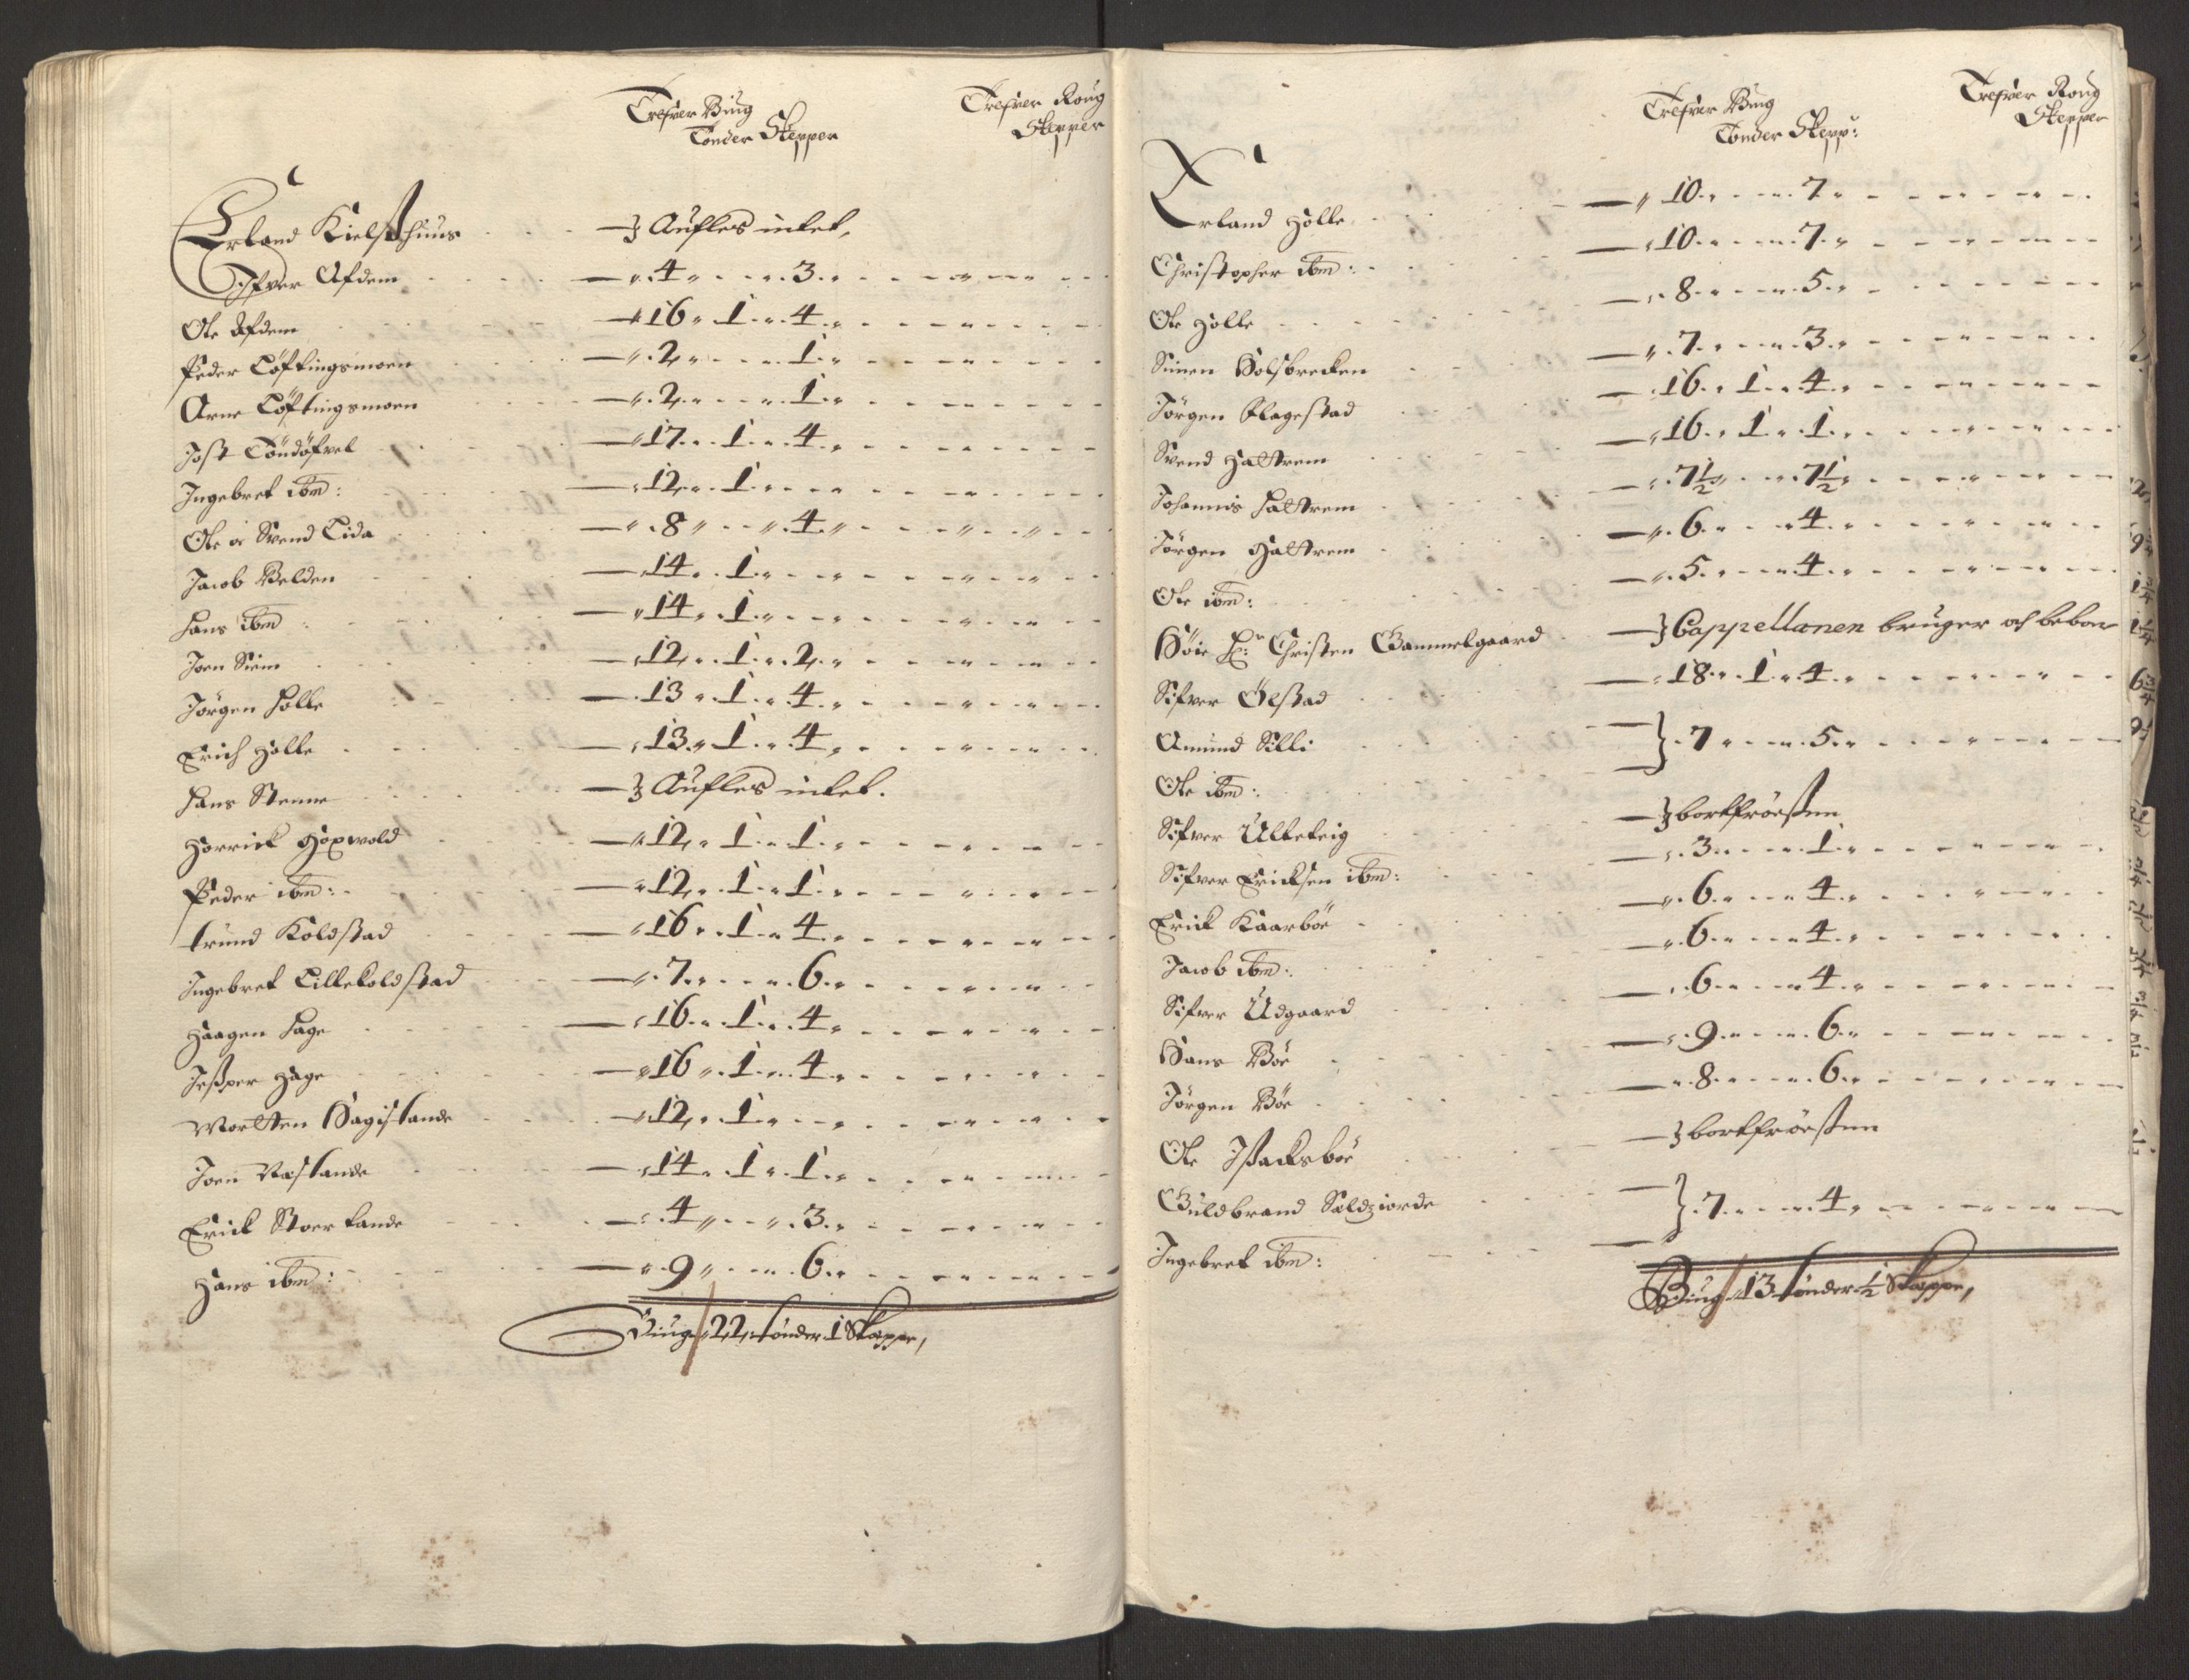 Trefver Biug
Tønder Skepper
Trefver Roug
Skepper
Erland Kielsthuus — Aufles intet,
Ifver Afdem — 4 - 3
Ole Afdem — 16 - 1 - 4
Peder Løftingsmoen — 2 - 1
Arne Løftingsmoen — 2 - 1
Jost Tøndøfvel — 17 - 1 - 4
Ingebret ibm: — 12 - 1
Ole oc Svend Lida — 8 - 4
Jacob Belden — 14 - 1
Hans ibm — 14 - 1
Joen Siem — 12 - 1 - 2
Jørgen Holle — 13 - 1 - 4
Erich Holle — 13 - 1 - 4
Hans Stenne — Aufles intet.
Horrick Hoxvold — 12 - 1 - 1
Peder ibm: — 12 - 1 - 1
Trund Koldstad — 16 - 1 - 4
Ingebret Lillekoldstad — 7 - 6
Haagen Hage — 16 - 1 - 4
Jesper Hage — 16 - 1 - 4
Morten Hagislande — 12 - 1
Joen — 14 - 1 - 1
Erick — 4 - 3
Hans ibm: — 9 - 6
Biug 22 tønder 1 Skeppe,
Trefver Biug
Tønder Skepp:
Trefver Roug
Skepper
Erland Holle — 10 - 7
Christopher ibm: — 10 - 7
Ole Holle — 8 - 5
Simen Holsbrecken — 7 - 3
Jørgen Flagestad — 16 - 1 - 4
Svend Hattrem — 16 - 1 - 1
Johannis Hattrem — 7½ - 7½
Jørgen Hattrem — 6 - 4
Ole ibm: — 5 - 4
Høie Hr: Christen Gammelgaard — Cappellanen bruger oc bebor
Sifver Ølstad — 18 - 1 - 4
Amund Silli } 7 - 5
Ole ibm:
Sifver Ulleteig — bortfrøesten
Sifver Ericksen ibm: — 3 - 1
Erick Kaarbøe — 6 - 4
Jacob ibm: — 6 - 4
Sifver Udgaard — 6 - 4
Hans Bøe — 9 - 6
Jørgen Bøe — 8 - 6
Ole Isacksbøe — bortfrøesten
Guldbrand } 7 - 4
Ingebret ibm:
Biug 13 tønder ½ Skeppe,